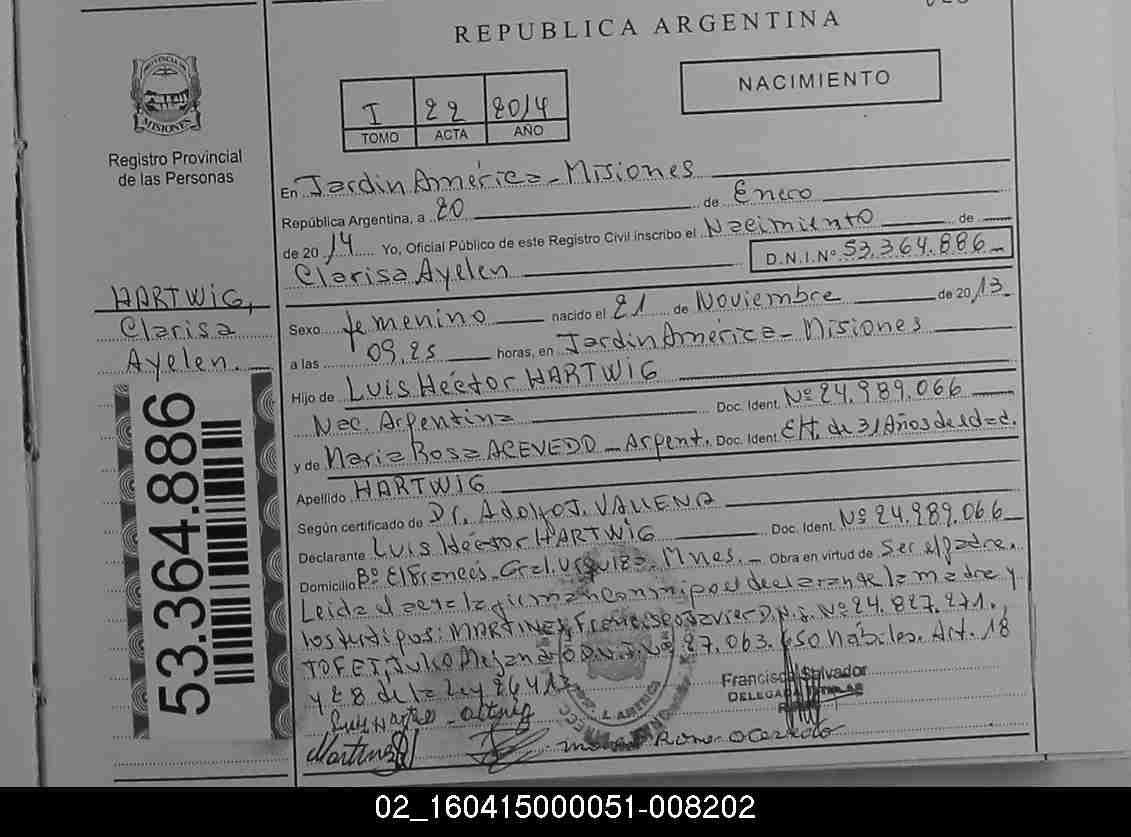 REPUBLICA ARGENTINA
PROVINCIA DE
MISIONES
Registro Provincial
de las Personas
I 22 2014
TOMO ACTA AÑO
NACIMIENTO
En Jardin América - Misiones
República Argentina, a 20 de Enero
de 2014 Yo, Oficial Público de este Registro Civil inscribo el Nacimiento de
Clarisa Ayelen D.N.I.Nº 53.364.886
Sexo femenino nacido el 21 de Noviembre de 2013
a las 09.25 horas, en Jardin América - Misiones
Hijo de Luis Héctor HARTWIG
Nac. Argentina Doc. Ident. Nº 24.989.066
y de Maria Rosa ACEVEDO - Argent. Doc. Ident. EH. de 31 Años de edad.
Apellido HARTWIG
Según certificado de Dr. Adolfo J. VALLENA
Declarante Luis Héctor HARTWIG Doc. Ident. Nº 24.989.066
Domicilio Bº El Francés - Gral. Urquiza - Mnes. - Obra en virtud de Ser el padre.
Leida el acta la firman conmigo el declarante la madre y
los testigos: MARTINEZ, Francisco Javier D.N.I. Nº 24.827.271,
TOFET, Julio Alejandro D.N.I. Nº 27.063.650 hábiles. Art. 18
y 28 de la Ley 26.413
Francisco Salvador
DELEGADO TITULAR
Martinez
HARTWIG,
Clarisa
Ayelen.
53.364.886
02_160415000051-008202